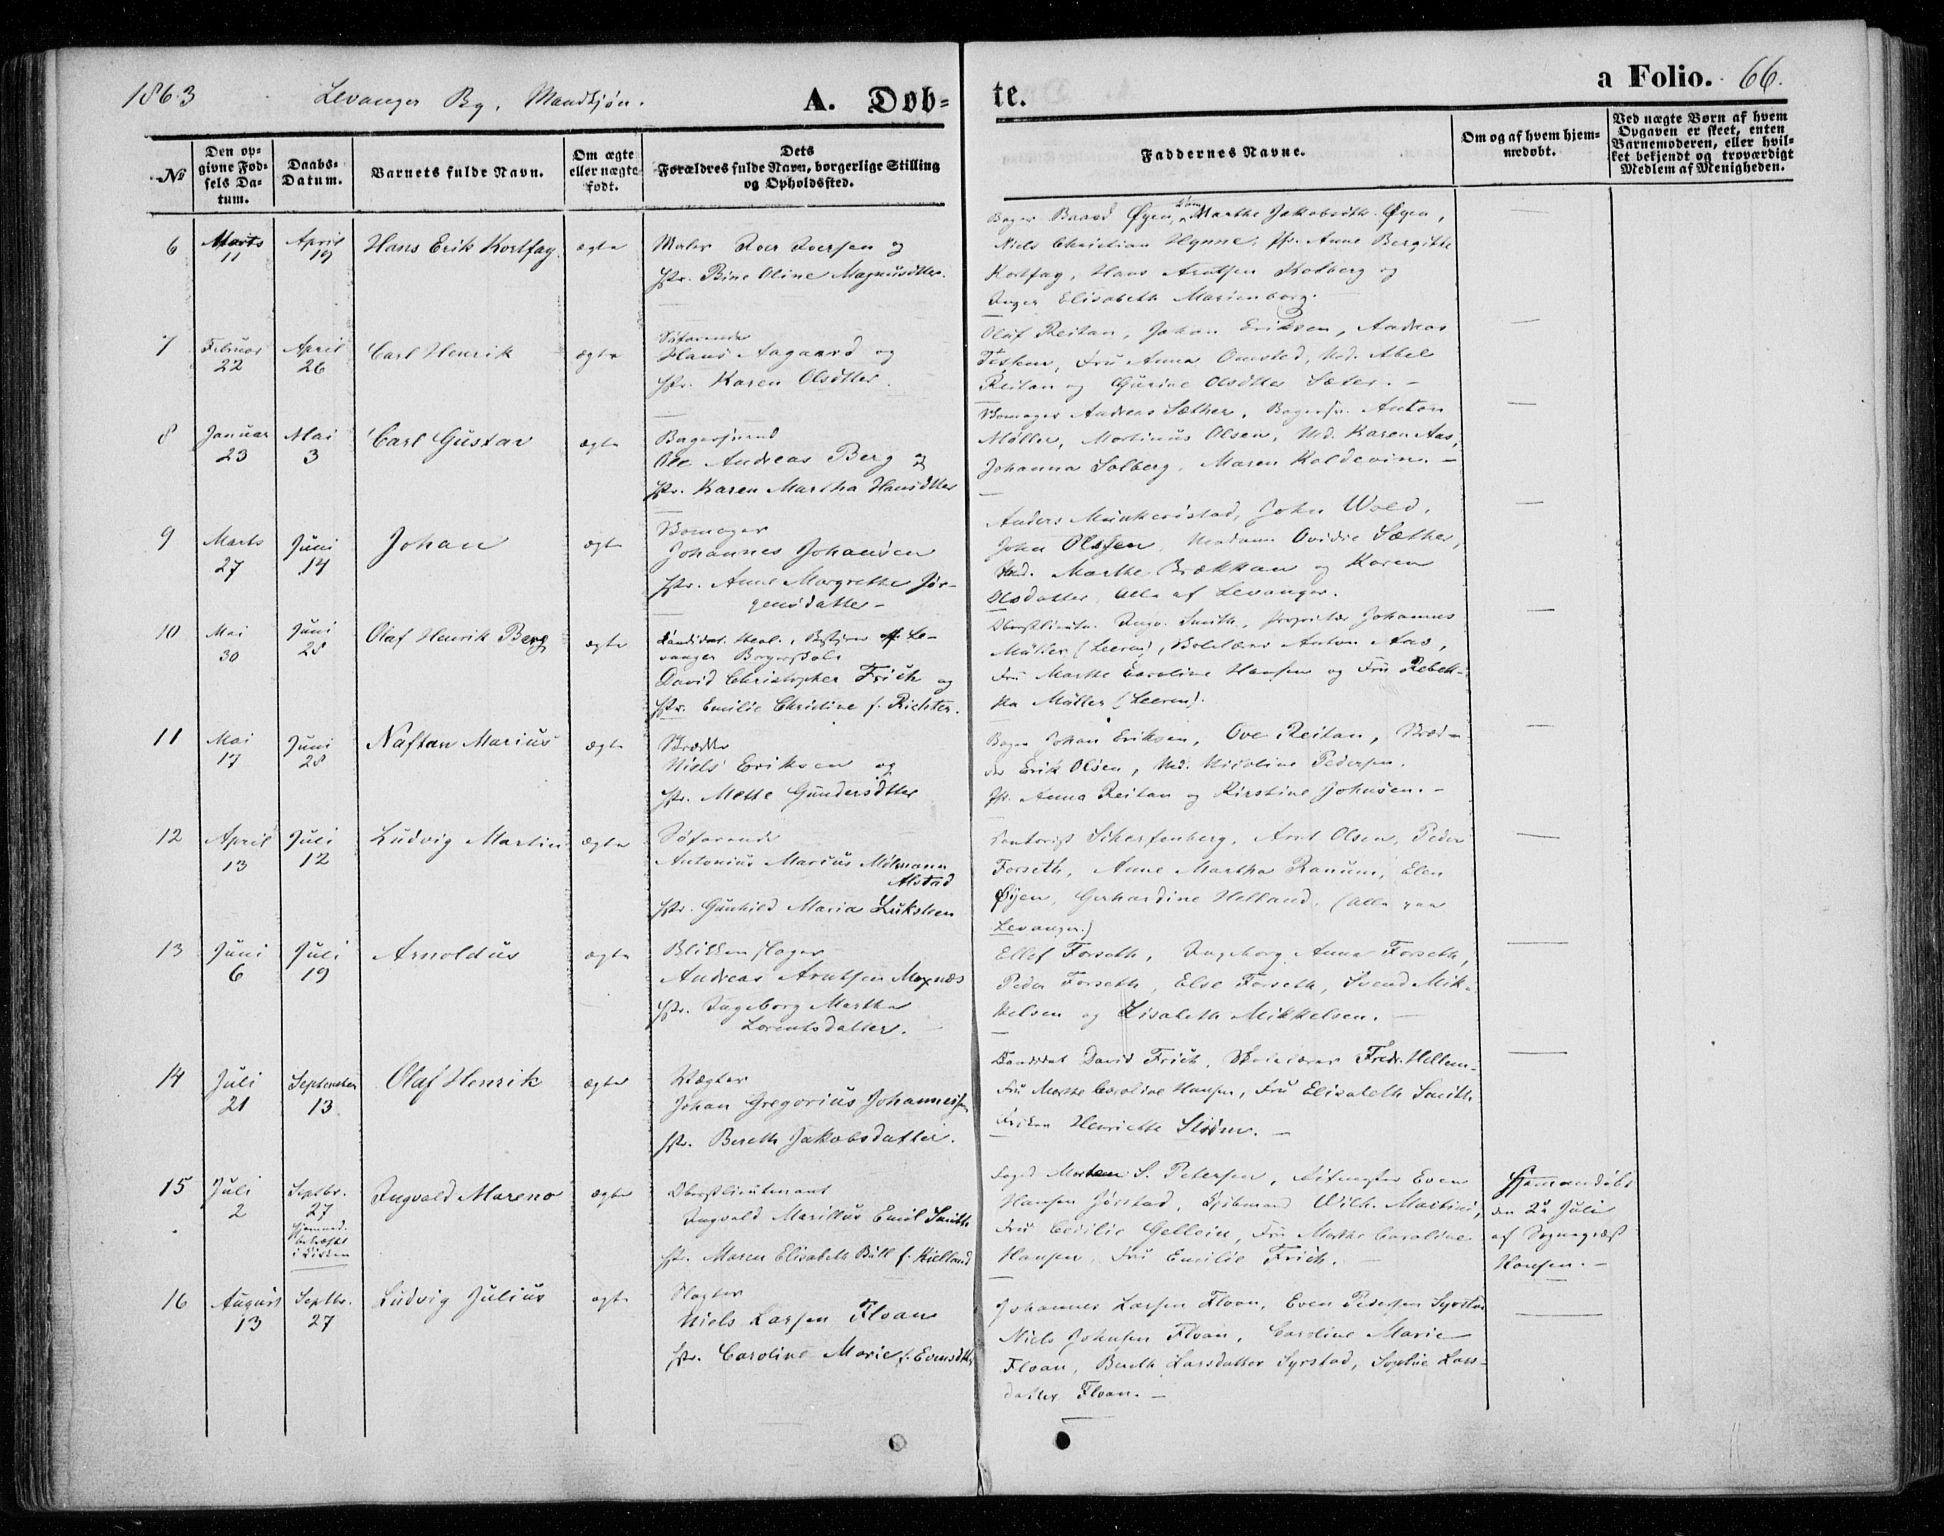 1863 Levanger By. Mandkjøn. A. Døb= te. a Folio. 66.
№
Den op=
givne Fød=
sels Da=
tum.
Daabs=
Datum.
Barnets fulde Navn.
Om ægte
eller nægte
født.
Dets
Forældres fulde Navn, borgerlige Stilling
og Opholdssted.
Faddernes Navne.
Om og af hvem hjem=
medøbt.
Ved nægte Børn af hvem
Opgaven er skeet, enten
Barnemoderen, eller hvil=
ket bekjendt og troværdigt
Medlem af Menigheden.
6
Marts
11
April
19
Hans Erik Kortfay
ægte
Maler Iver Iversen og
Hstr. Bine Oline Magnusdtter.
Bager Baard Øyen, Marthe Jakobsdtr. Øyen,
Niels Christian Hynne, Anne Bergitte
Kortfay, Hans Arntsen Holberg og
Inger Elisabeth Marienborg.
7
Februar
22
April
26
Carl Henrik
ægte
Søfarende
Hans Aagaard og
Hstr. Karen Olsdtter.
Olaf Reitan, Johan Eriksen, Andreas
Fru Anna Omsted, Md. Abel
Reitan og Gurine Olsdtter Sæter. -
8
Januar
23
Mai
3
Carl Gustav
ægte
Bagersvend
Ole Andreas Berg og
Hstr. Karen Martha Hansdtter
Skomager Andreas Sæther, Bagersv. Anton
Møller, Martinus Olsen, Md. Karen Aas,
Johanna Solberg, Maren Koldevin. -
9
Marts
27
Juni
14
Johan
ægte
Skomager
Johannes Johansen
Hstr. Anne Margrethe Jør-
gensdatter -
Anders Munkerøstad, John Wold,
John Olsen, Madam Ovidie Sæther,
Md. Marthe Brækkan og Karen
Olsdatter, Alle af Levanger.
10
Mai
30
Juni
28
Olaf Henrik Berg
ægte
Candidat theol., Bestyrer af Le-
vanger Borgerskole
David Christopher Frich og
Hstr. Emilie Christine f. Richter.
Oberstlieutn. Ingv. Smith, Proprietær Johannes
Müller (Leeren), Skolelærer Anton Aas,
Fru Marthe Caroline Hansen og Fru Rebek-
ka Müller (Leeren).
11
Mai
17
Juni
28
Naftan Marius
ægte
Skrædder
Niels Eriksen og
Hstr. Mette Gundersdtter
Bager Johan Eriksen, Ove Reitan, Skræd-
der Erik Olsen, Md. Nicoline Pedersen,
Anna Reitan og Kirstine Johnsen. -
12
April
13
Juli
12
Ludvig Martin
ægte
Søfarende
Antonius Marius Mölmann
Alstad
Hstr. Gunhild Maria Luksteen
Contorist Scharfenberg, Arnt Olsen, Peder
Forseth, Anne Martha Ranum, Elen
Øyen, Gerhardine Helland, (Alle paa
Levanger.)
13
Juni
6
Juli
19
Arnoldus
ægte
Blikkenslager
Andreas Arntsen Moxnæs
Hstr. Ingeborg Martha
Lorentsdatter.
Ellef Forseth, Ingeborg Anna Forseth,
Peder Forseth, Else Forseth, Svend Mik-
kelsen og Lisabeth Mikkelsen. -
14
Juli
21
September
13
Olaf Henrik
ægte
Vægter
Johan Gregorius Johannessen
Hstr. Bereth Jakobsdatter.
Candidat David Frich, Skolelærer Fredr. Hellem
Fru Marthe Caroline Hansen, Fru Elisabeth Smith
Frøken Henriette Strøm. -
15
Juli
2
Septbr.
27
Hjemmed.
bekræftet
i Kirken
Ingvald Mareno
ægte
Oberstlieutenant
Ingvald Marillus Emil Smith
Hstr. Maren Elisabeth Bull f. Kielland
Foged Morten S. Petersen, Ritmester Even
Hansen Jørstad, Kjøbmand Wilh. Martini,
Fru Cecilie Gellein, Fru Marthe Caroline
Hansen, Fru Emilie Frich. -
Hjemmedøbt
den 2n Juli
af Sognepræst
Hansen. -
16
August
13
Septbr.
27
Ludvig Julius
ægte
Slagter
Niels Larsen Floan
Hstr. Caroline Marie f. Evensdtter
Johannes Larsen Floan, Even Pedersen Syrstad
Niels Johnsen Floan, Caroline Marie
Floan, Bereth Larsdatter Syrstad, Sophie Lars-
datter Floan. -